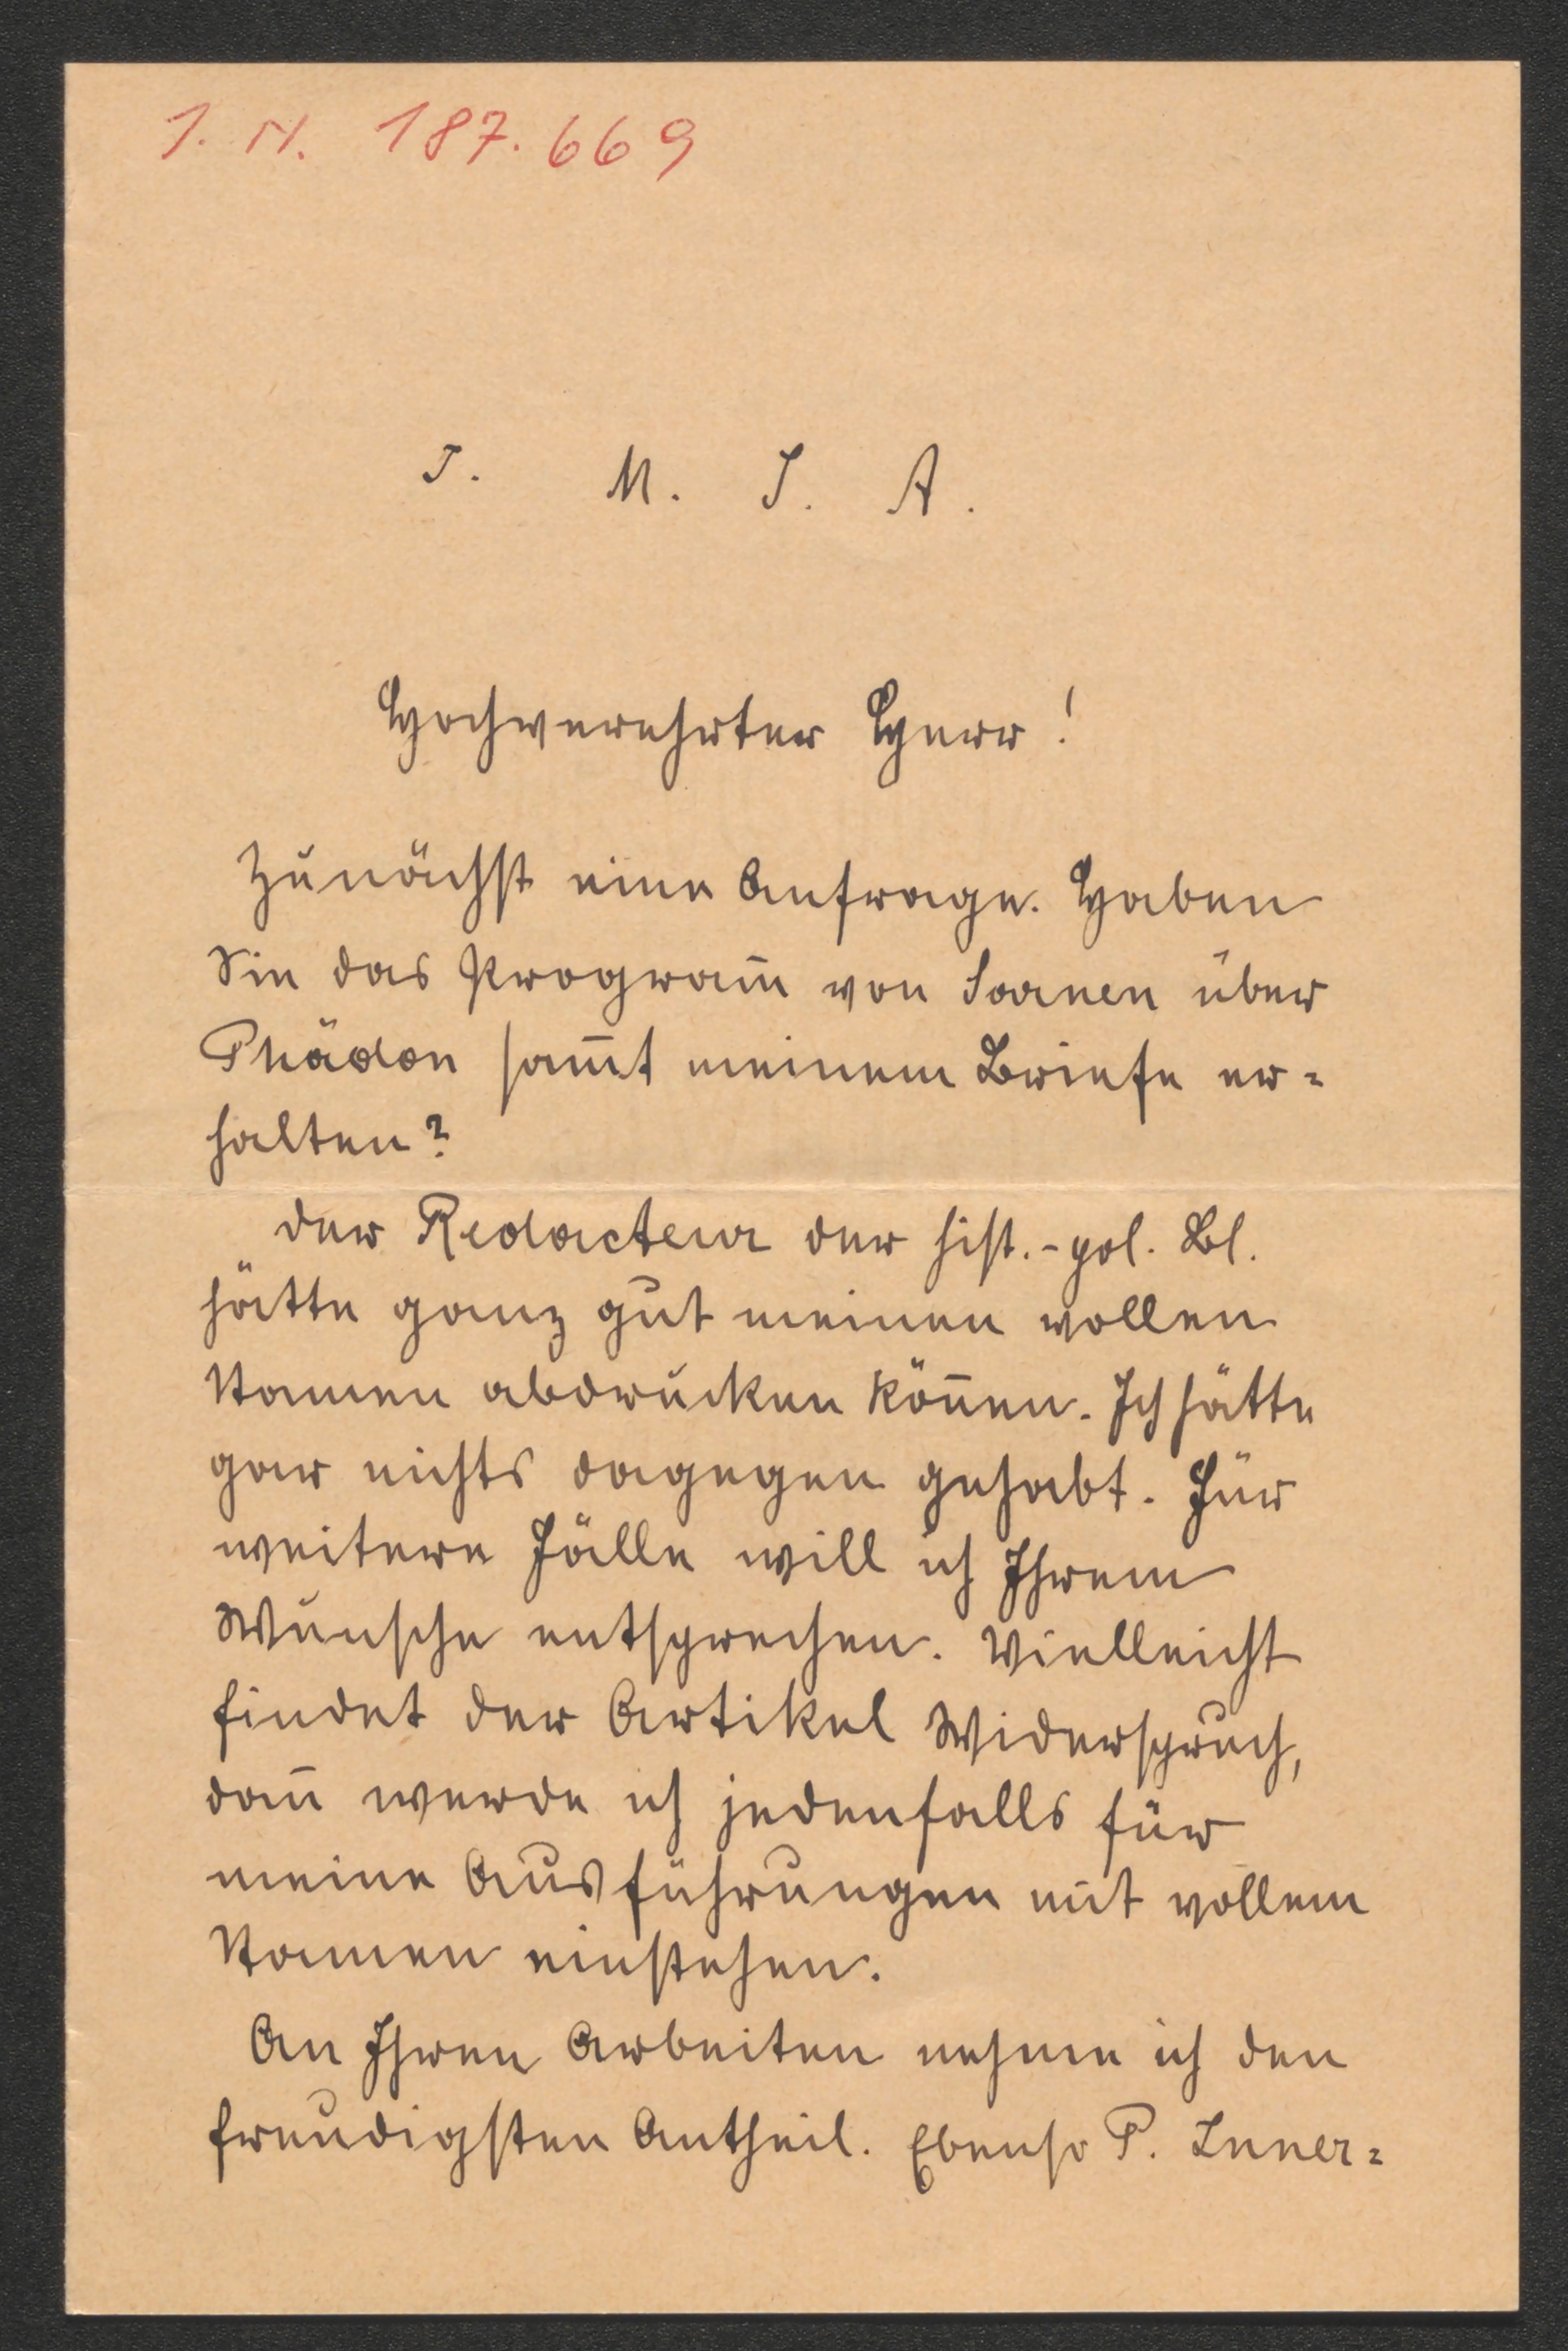 I. N. 187.669
J. M. J. A.
Hochverehrter Herr!
Zunächst eine Anfrage. Haben
Sie das Program̅ von Saanen über
Phädon sam̅t meinem Briefe er=
halten?
Der Redacteur der hist.-pol. Bl.
hätte ganz gut meinen vollen
Namen abdrucken kön̅en. Ich hätte
gar nichts dagegen gehabt. Für
weitere Fälle will ich Ihrem
Wunsche entsprechen. Vielleicht
findet der Artikel Widerspruch,
dan̅ werde ich jedenfalls für
meine Ausführungen mit vollem
Namen einstehen.
An Ihren Arbeiten nehme ich den
freudigsten Antheil. Ebenso P. Inner=